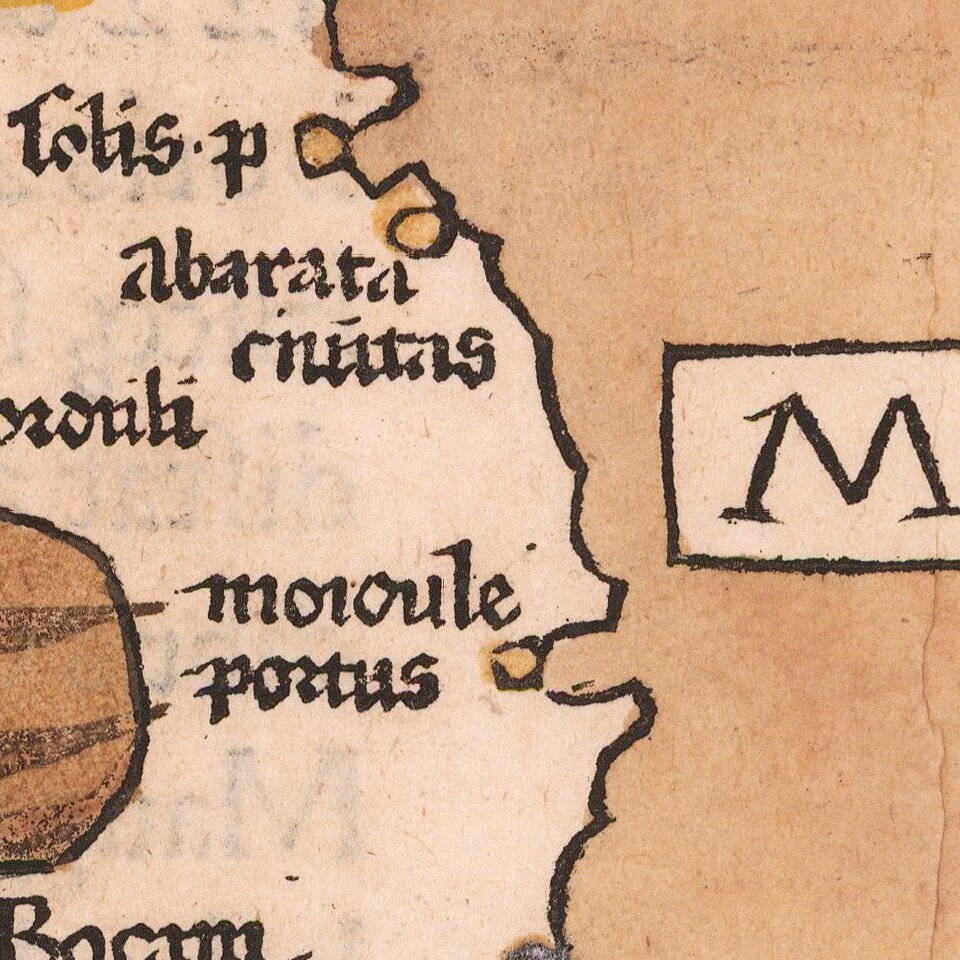 Solis · p
abarata
ciuitas
orduli
M
moroule
portus
Bocam